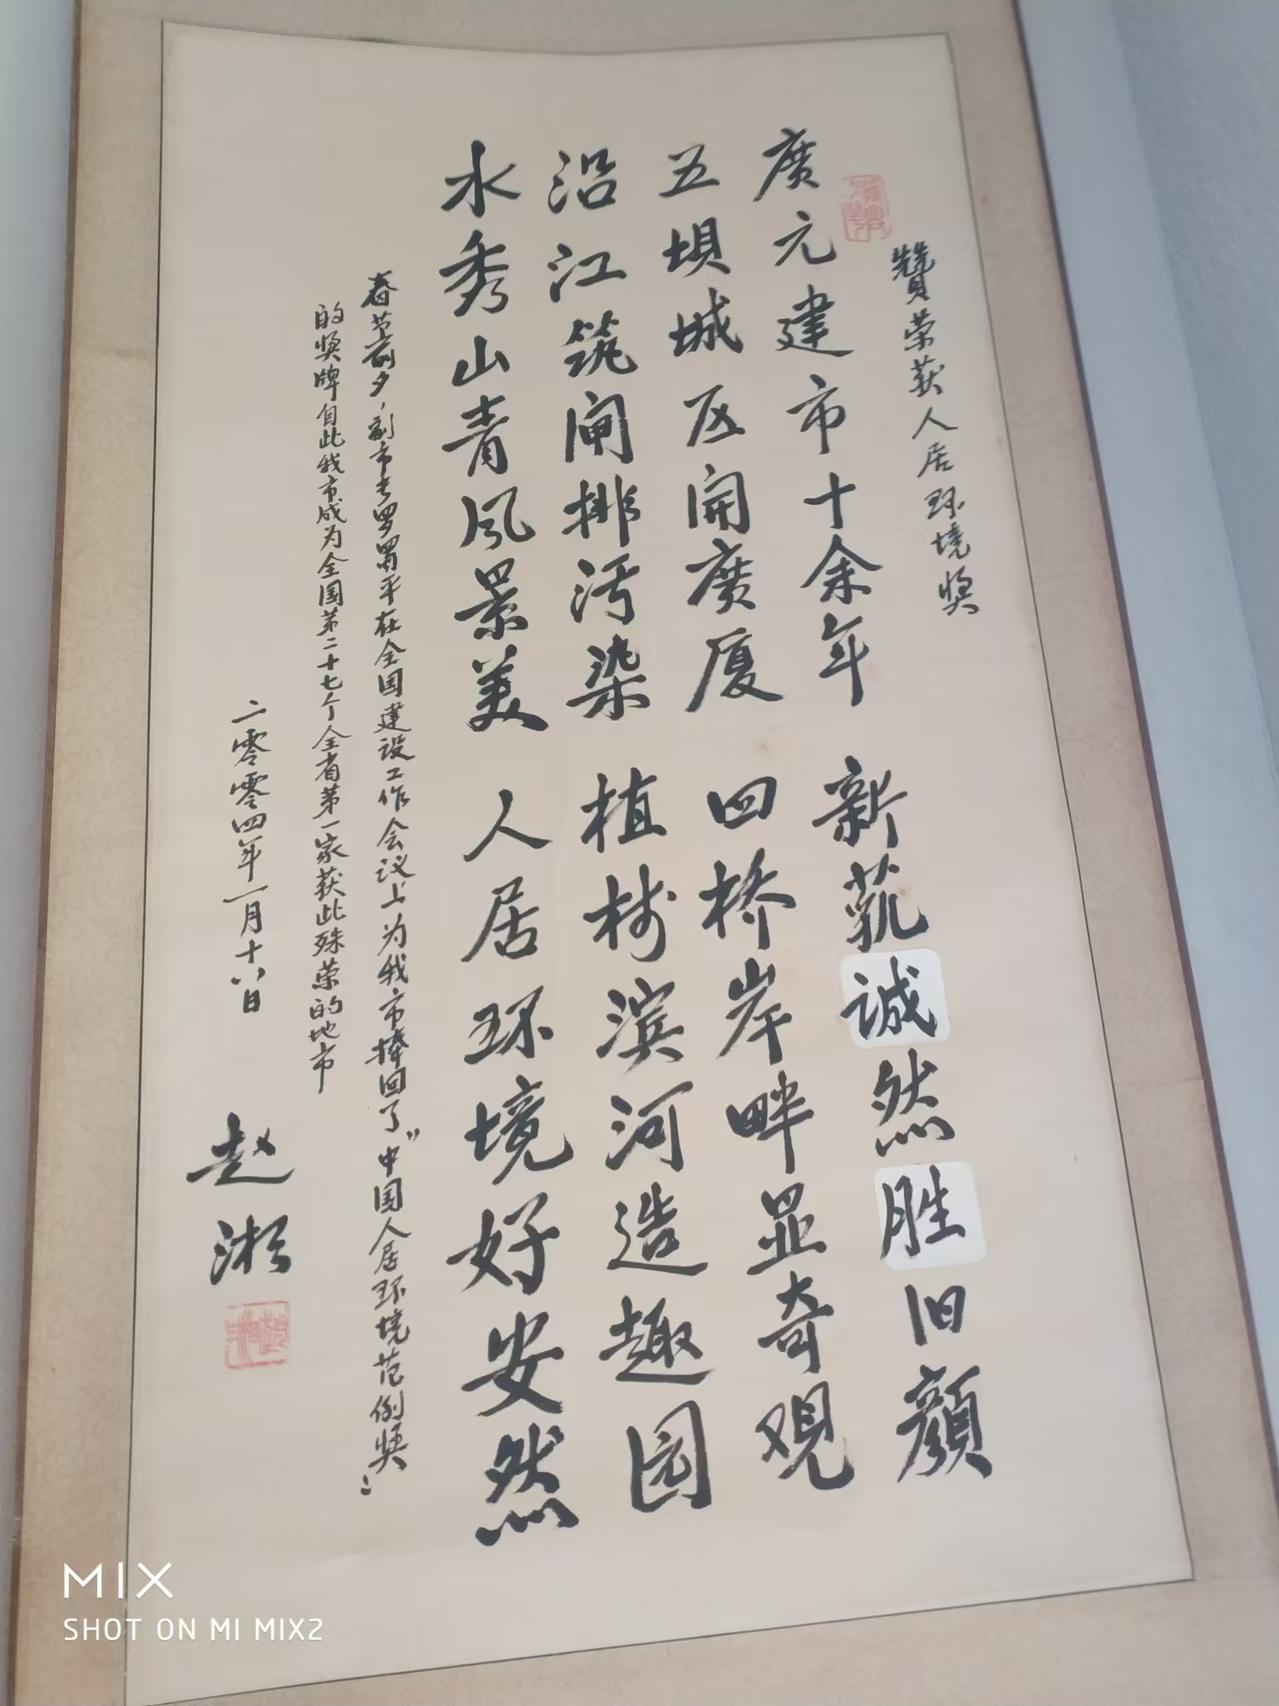 贊荣获人居环境奖
廣元建市十余年 新苑诚然胜旧顔
五坝城区开廣厦 四桥岸畔显奇观
沿江筑闸排污染 植树滨河造趣园
水秀山青风景美 人居环境好安然
春节前夕，副市长罗蜀平在全国建设工作会议上为我市捧回了“中国人居环境范例奖”
的奖牌自此我市成为全国第二十七个全省第一家获此殊荣的地市
二零零四年一月十八日
赵淞
MIX
SHOT ON MI MIX2